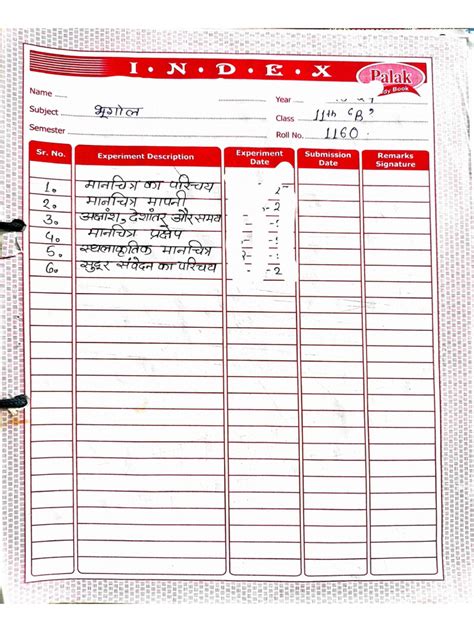 I·N·D·E·X
Palak
dy Book
Name
Year
Subject भूगोल
Class 11th 'B'
Semester
Roll No. 1160
Sr. No. Experiment Description Experiment Date Submission Date Remarks Signature
1. मानचित्र का परिचय
2. मानचित्र मापनी
3. अक्षांश, देशांतर और समय
4. मानचित्र प्रक्षेप
5. स्थलाकृतिक मानचित्र
6. सुदूर संवेदन का परिचय